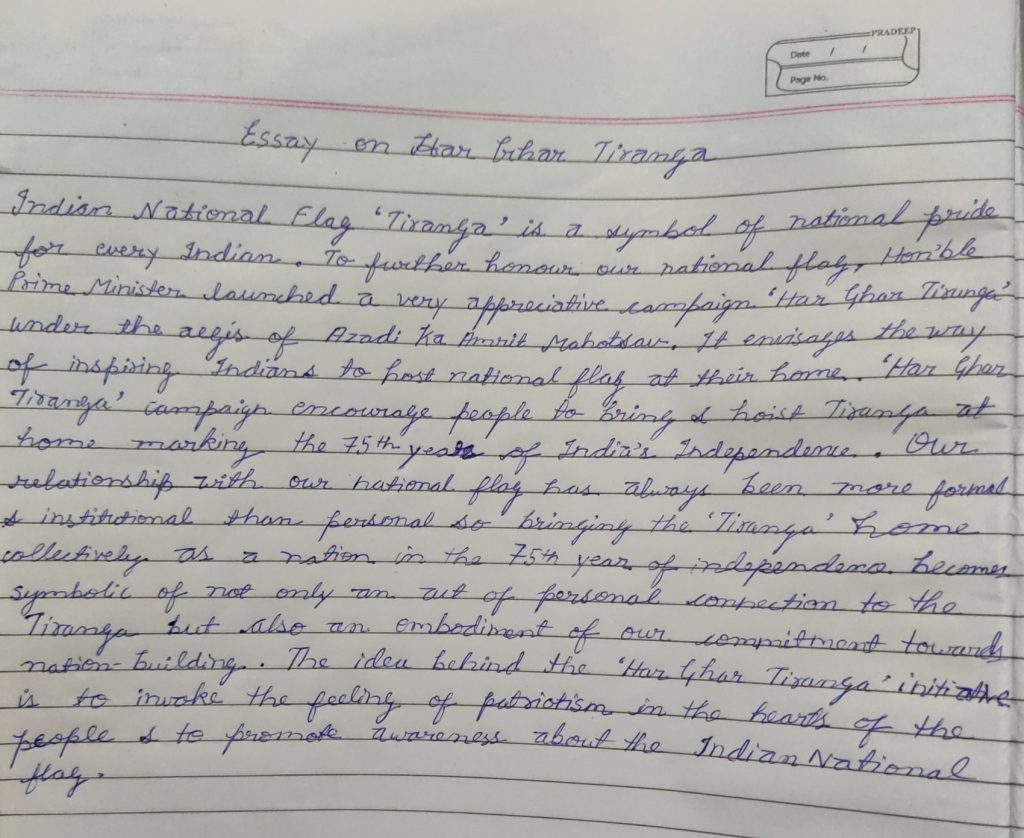 PRADEEP
Date / /
Page No.
Essay on Har Ghar Tiranga
Indian National Flag 'Tiranga' is a symbol of national pride
for every Indian. To further honour our national flag, Hon'ble
Prime Minister launched a very appreciative campaign 'Har Ghar Tiranga'
under the aegis of Azadi Ka Amrit Mahotsav. It envisages the way
of inspiring Indians to host national flag at their home. 'Har Ghar
Tiranga' campaign encourage people to bring & hoist Tiranga at
home marking the 75th year of India's Independence. Our
relationship with our national flag has always been more formal
& institutional than personal so bringing the 'Tiranga' home
collectively as a nation in the 75th year of independence becomes
symbolic of not only an act of personal connection to the
Tiranga but also an embodiment of our commitment towards
nation-building. The idea behind the 'Har Ghar Tiranga' initiative
is to invoke the feeling of patriotism in the hearts of the
people & to promote awareness about the Indian National
flag.